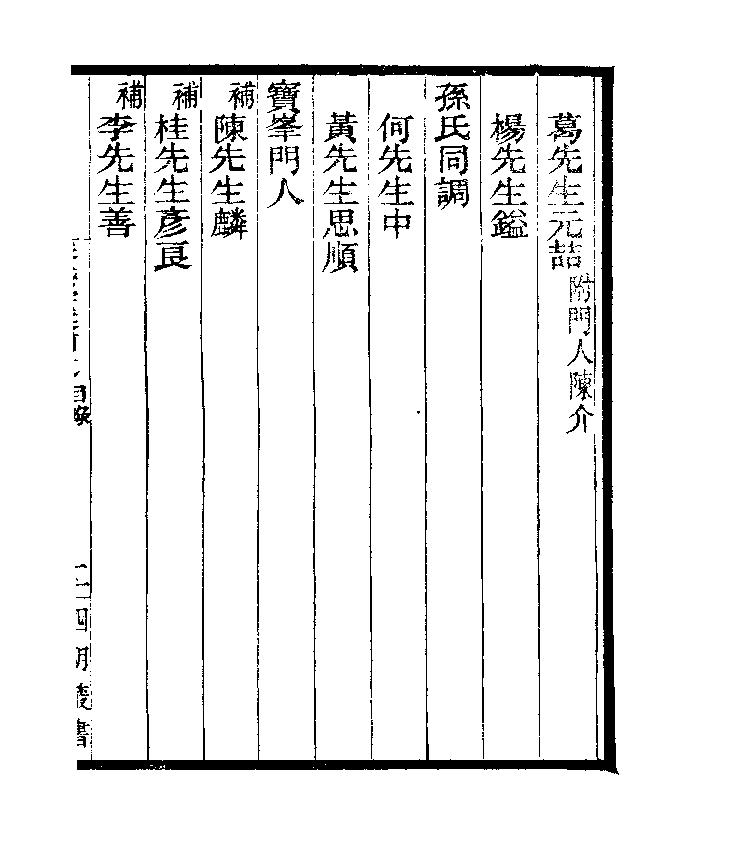 葛先生元喆附門人陳介
楊先生鎰
孫氏同調
何先生中
黃先生思順
寶峯門人
補陳先生麟
補桂先生彥良
補李先生善
目錄
四明叢書